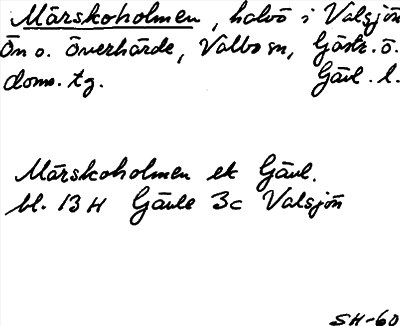 Märskoholmen, halvö i Valsjön
Ön o. Överhärde, Valbo sn, Gästr. ö.
doms. tg. Gävl. l.
Märskoholmen ek Gävl.
bl. 13H Gävle 3c Valsjön
SH-60